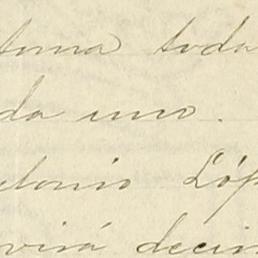 toma toda
da uno.
ntonio Lóp
virá decir